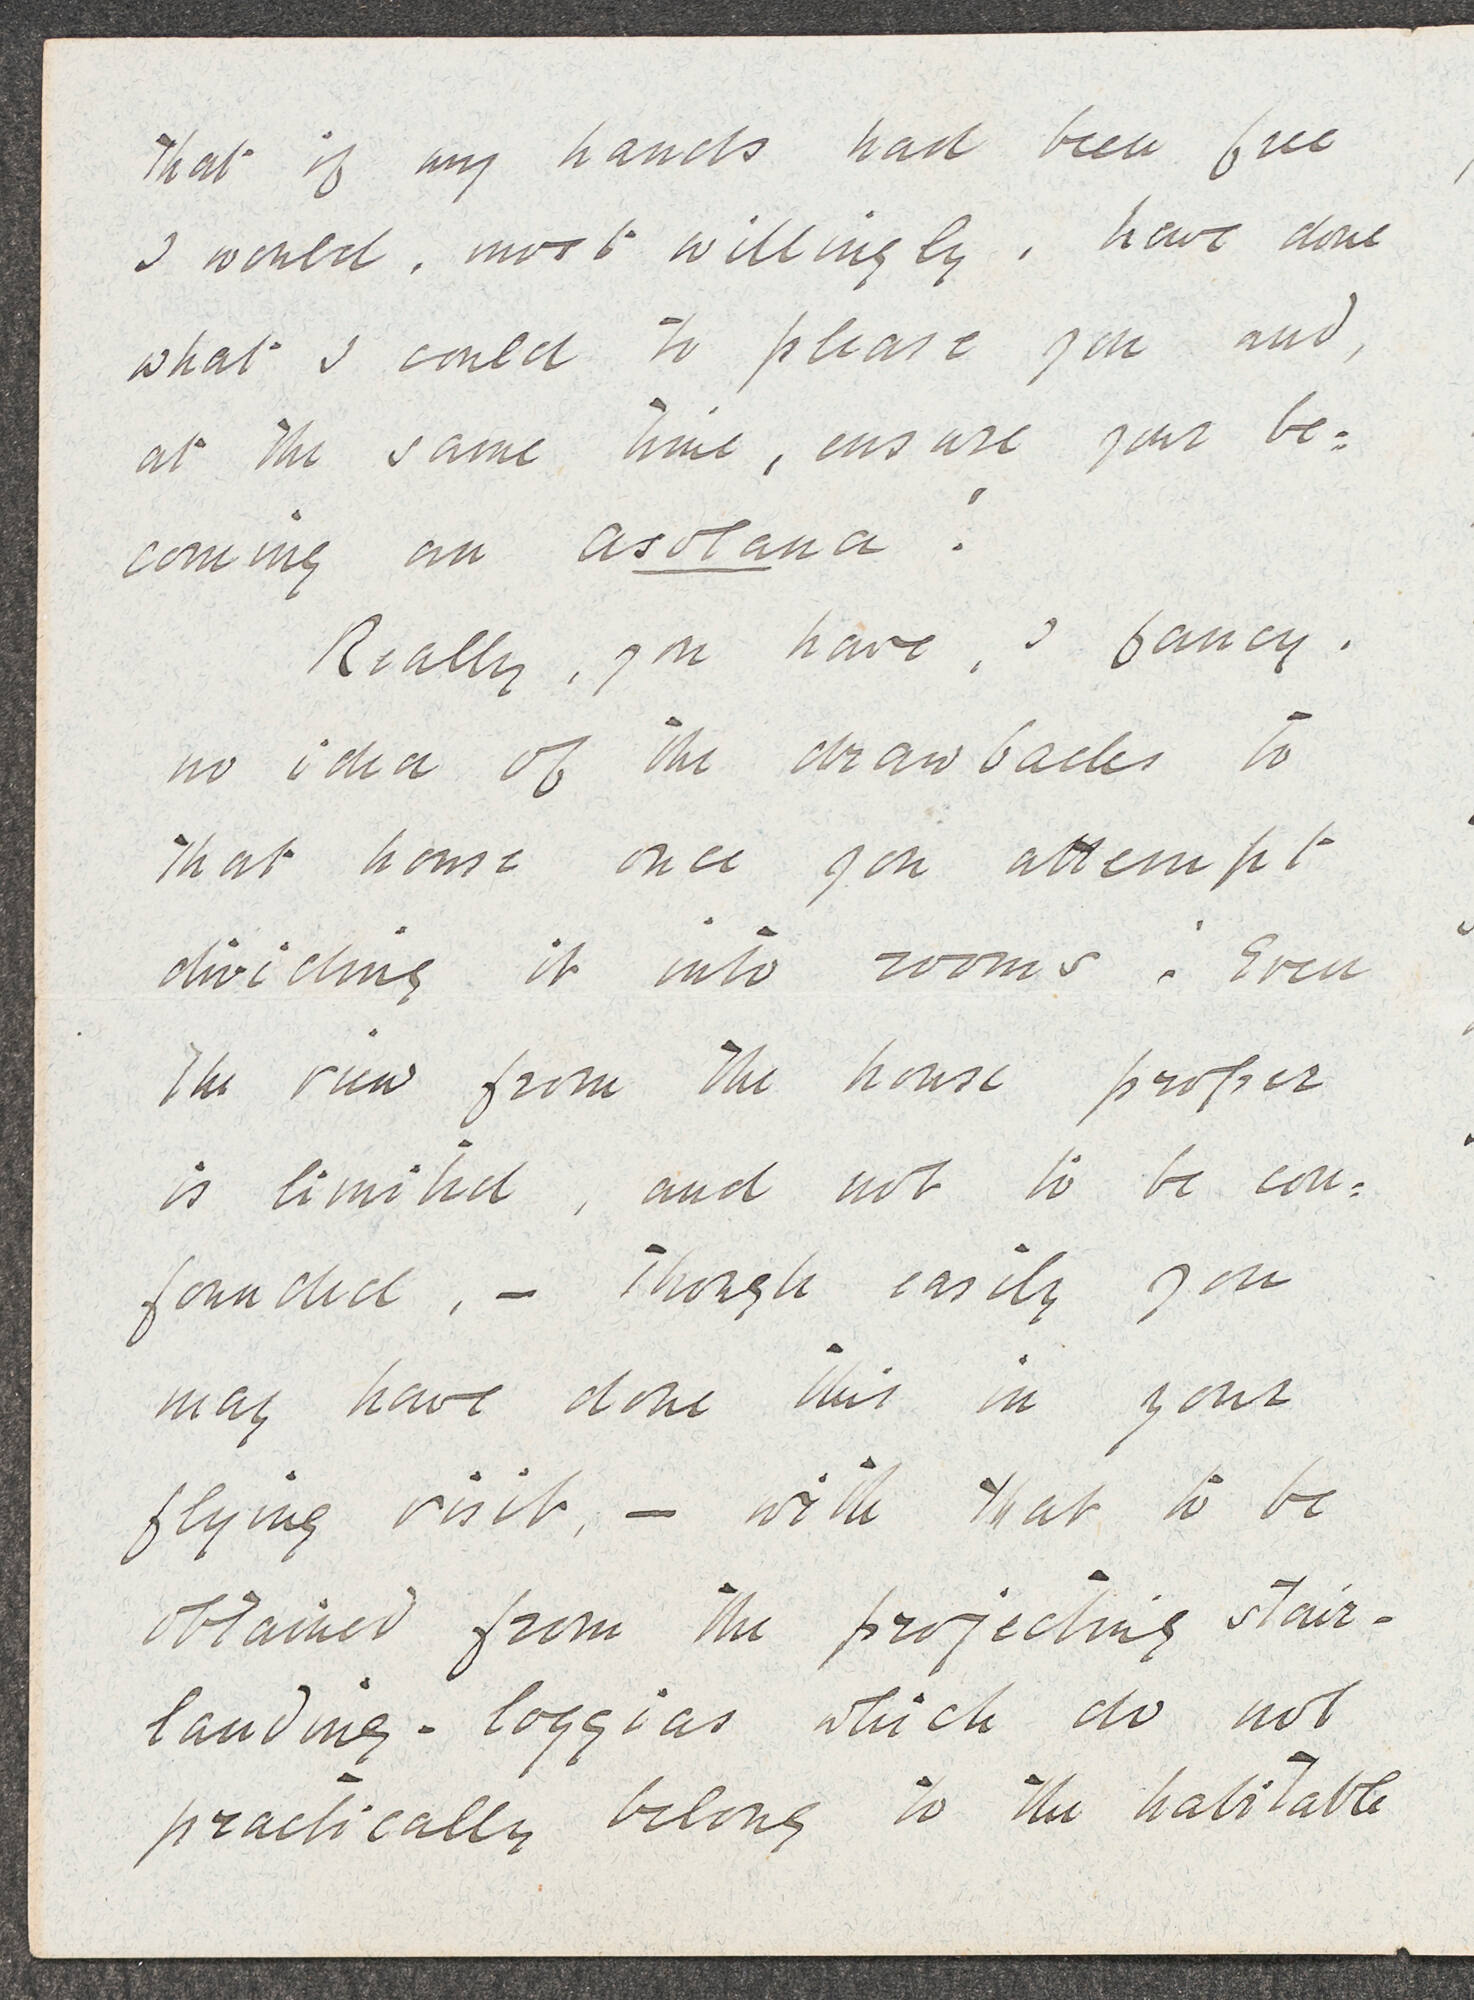 that if my hands had been free
I would, most willingly, have done
what I could to please you and,
at the same time, ensure your be=
coming an asolana!
Really, you have, I fancy,
no idea of the drawbacks to
that house once you attempt
dividing it into rooms! Even
the view from the house proper
is limited, and not to be con=
founded, — though easily you
may have done this in your
flying visit, — with that to be
obtained from the projecting stair-
landing-loggias which do not
practically belong to the habitable